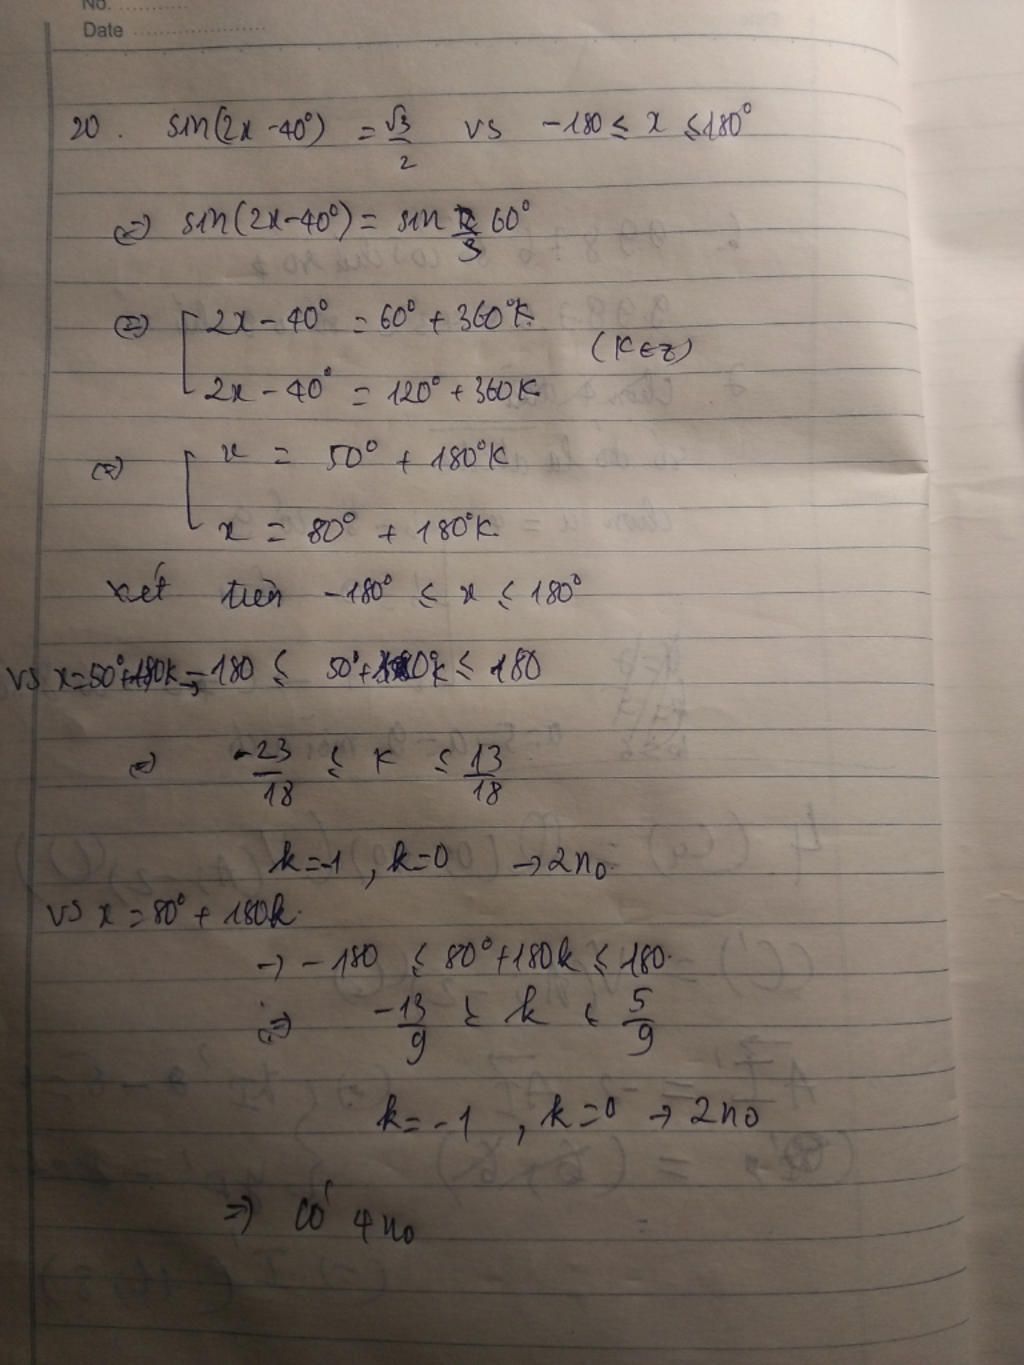 No. ..........
Date ....................
20. sin(2x - 40°) = √3/2 vs -180 ≤ x ≤ 180°
<=> sin(2x - 40°) = sin 60°
<=> [ 2x - 40° = 60° + 360°K
(K ∈ Z)
2x - 40° = 120° + 360K
<=> [ x = 50° + 180°K
x = 80° + 180°K
xét trên -180° ≤ x ≤ 180°
vs x = 50° + 180k → -180 ≤ 50° + 180°k ≤ 180
=> -23/18 ≤ K ≤ 13/18
k = -1, k = 0 → 2 no
vs x = 80° + 180k
→ -180 ≤ 80° + 180k ≤ 180
=> -13/9 ≤ k ≤ 5/9
k = -1, k = 0 → 2 no
=> Có 4 no